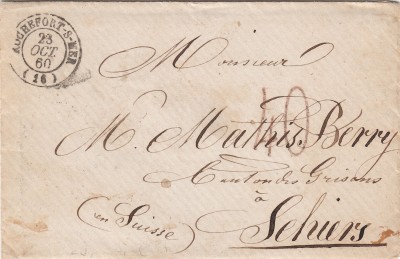 ROCHEFORT-S-MER
23
OCT.
60
(16)
Monsieur
40
M. Mathis Berry
Canton des Grisons
à
(en Suisse)
Schiers